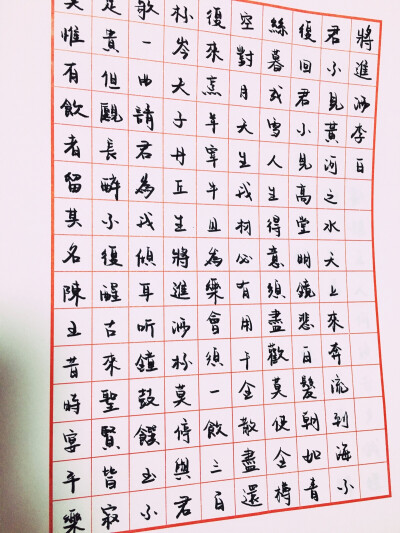 將進酒李白
君不見黃河之水天上來奔流到海不
復回君不見高堂明鏡悲白髮朝如青
絲暮成雪人生得意須盡歡莫使金樽
空對月天生我材必有用千金散盡還
復來烹羊宰牛且為樂會須一飲三百
杯岑夫子丹丘生將進酒杯莫停與君
歌一曲請君為我傾耳听鐘鼓饌玉不
足貴但願長醉不復醒古來聖賢皆寂
惟有飲者留其名陳王昔時宴平樂